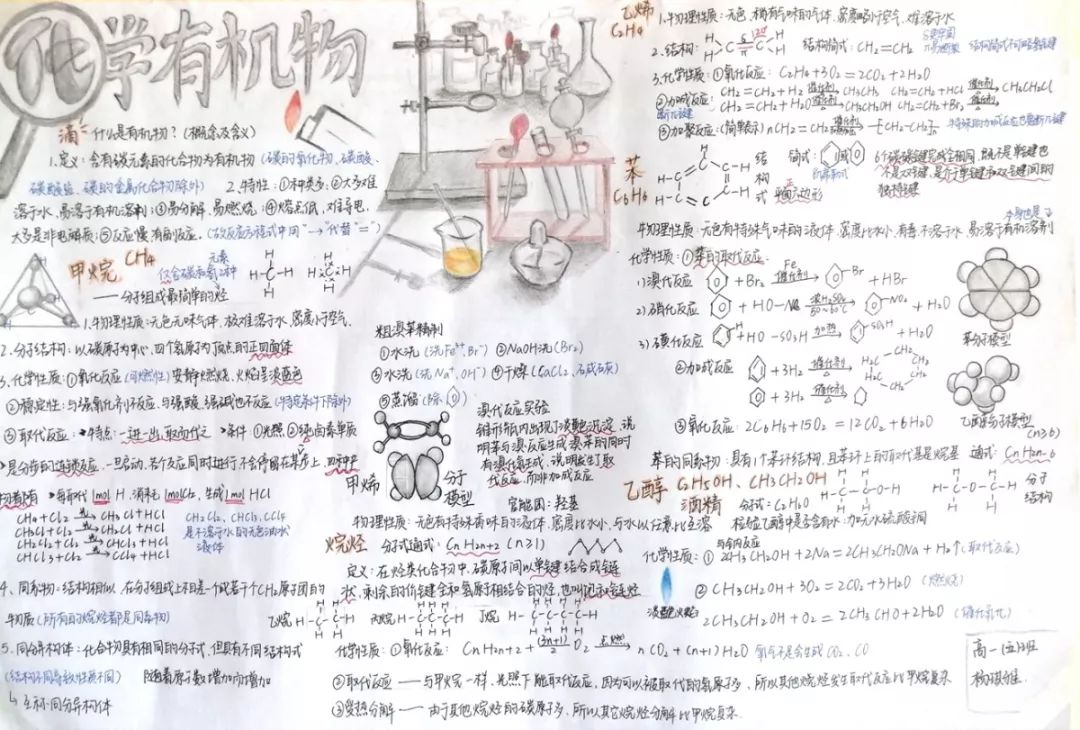 化学有机物
滴 什么是有机物？(概念及含义)
1.定义：含有碳元素的化合物为有机物 (碳的氧化物、碳酸、
碳酸盐、碳的金属化合物除外) 2.特性：①种类多；②大多难
溶于水，易溶于有机溶剂；③易分解，易燃烧；④熔点低，难导电，
大多是非电解质；⑤反应慢，有副反应。(故反应方程式中用"→"代替"=")
甲烷 CH4
仅含碳和氢2种元素
——分子组成最简单的烃
1.物理性质：无色无味气体，极难溶于水，密度小于空气.
2.分子结构：以碳原子为中心，四个氢原子为顶点的正四面体
3.化学性质：①氧化反应(可燃性)安静燃烧，火焰呈淡蓝色
②稳定性：与强氧化剂不反应，与强酸、强碱也不反应(特定条件下除外)
③取代反应：特点：一进一出，取而代之 条件 ①光照 ②纯卤素单质
是分步的连锁反应，一旦启动，各个反应同时进行，不会停留在某步上，四种产
物都有 每取代1mol H，消耗1molCl2，生成1mol HCl
CH4+Cl2 → CH3Cl+HCl
CH3Cl+Cl2 → CH2Cl2+HCl
CH2Cl2+Cl2 → CHCl3+HCl
CHCl3+Cl2 → CCl4+HCl
CH2Cl2、CHCl3、CCl4
是不溶于水的无色油状
液体
4、同系物：结构相似，在分子组成上相差一个或若干个CH2原子团的
物质(所有的烷烃都是同系物)
5、同分异构体：化合物具有相同的分子式，但具有不同结构式
(结构不同导致性质不同) 随着原子数增加而增加
互称同分异构体
粗溴苯精制
①水洗 (洗Fe3+,Br-) ②NaOH洗(Br2)
③水洗 (洗Na+,OH-) ④干燥 (CaCl2、石灰)
⑤蒸馏 (除 )
溴代反应实验
锥形瓶内出现了淡黄色沉淀，说
明苯与溴反应生成溴苯的同时
有溴化氢生成，说明发生了取
代反应，而非加成反应
甲烯 分子模型
官能团：羟基
物理性质：无色有特殊香味的液体，密度比水小，与水以任意比互溶
烷烃 分子式通式：CnH2n+2 (n≥1)
定义：在烃类化合物中，碳原子间以单键结合成链
状，剩余的价键全和氢原子相结合的烃，也叫饱和链烃
乙烷 丙烷 丁烷
化学性质：①氧化反应：CnH2n+2 + (3n+1)/2 O2 → n CO2 + (n+1) H2O 氧气不足会生成CO2、CO
②取代反应——与甲烷一样，光照下能取代反应，因为可以被取代的氢原子多，所以其他烷烃发生取代反应比甲烷复杂
③受热分解——由于其他烷烃的碳原子多，所以其它烷烃分解比甲烷复杂.
乙烯 C2H4
1.物理性质：无色，稍有气味的气体，密度略小于空气，难溶于水
2.结构： 结构简式：CH2=CH2 结构简式不可略去双键
3.化学性质：①氧化反应：C2H4+3O2=2CO2+2H2O
②加成反应：CH2=CH2+H2 CH3CH3 CH2=CH2+HCl CH3CH2Cl
CH2=CH2+H2O CH3CH2OH CH2=CH2+Br2
③加聚反应：(简单表示) nCH2=CH2 -[CH2-CH2]n 特殊的加成反应也要断双键
苯 C6H6
结构式 简式： 或
平面正六边形
6个碳碳键完全相同，既不是单键也
不是双键，是介于单键和双键间的
独特键
物理性质：无色有特殊气味的液体，密度比水小，有毒，不溶于水，易溶于有机溶剂
化学性质：①苯的取代反应：
1)溴代反应 +Br2 Fe 催化剂 Br +HBr
2)硝化反应 +HO-NO2 浓H2SO4 50~60℃ NO2 +H2O
3)磺化反应 +HO-SO3H 加热 SO3H +H2O
②加成反应 +3H2 催化剂
+3H2 催化剂
苯分子模型
③氧化反应：2C6H6+15O2=12CO2+6H2O
乙醇分子模型
苯的同系物：具有1个苯环结构，且苯环上的取代基是烷基 通式：CnH2n-6 (n≥6)
乙醇 C2H5OH、CH3CH2OH
酒精 分子式：C2H6O
分子结构
检验乙醇中是否含有水：加无水硫酸铜
化学性质：① 2CH3CH2OH+2Na=2CH3CH2ONa+H2↑(取代反应)
② CH3CH2OH+3O2=2CO2+3H2O (燃烧)
淡蓝色火焰
2CH3CH2OH+O2=2CH3CHO+2H2O (催化氧化)
高一(五)班